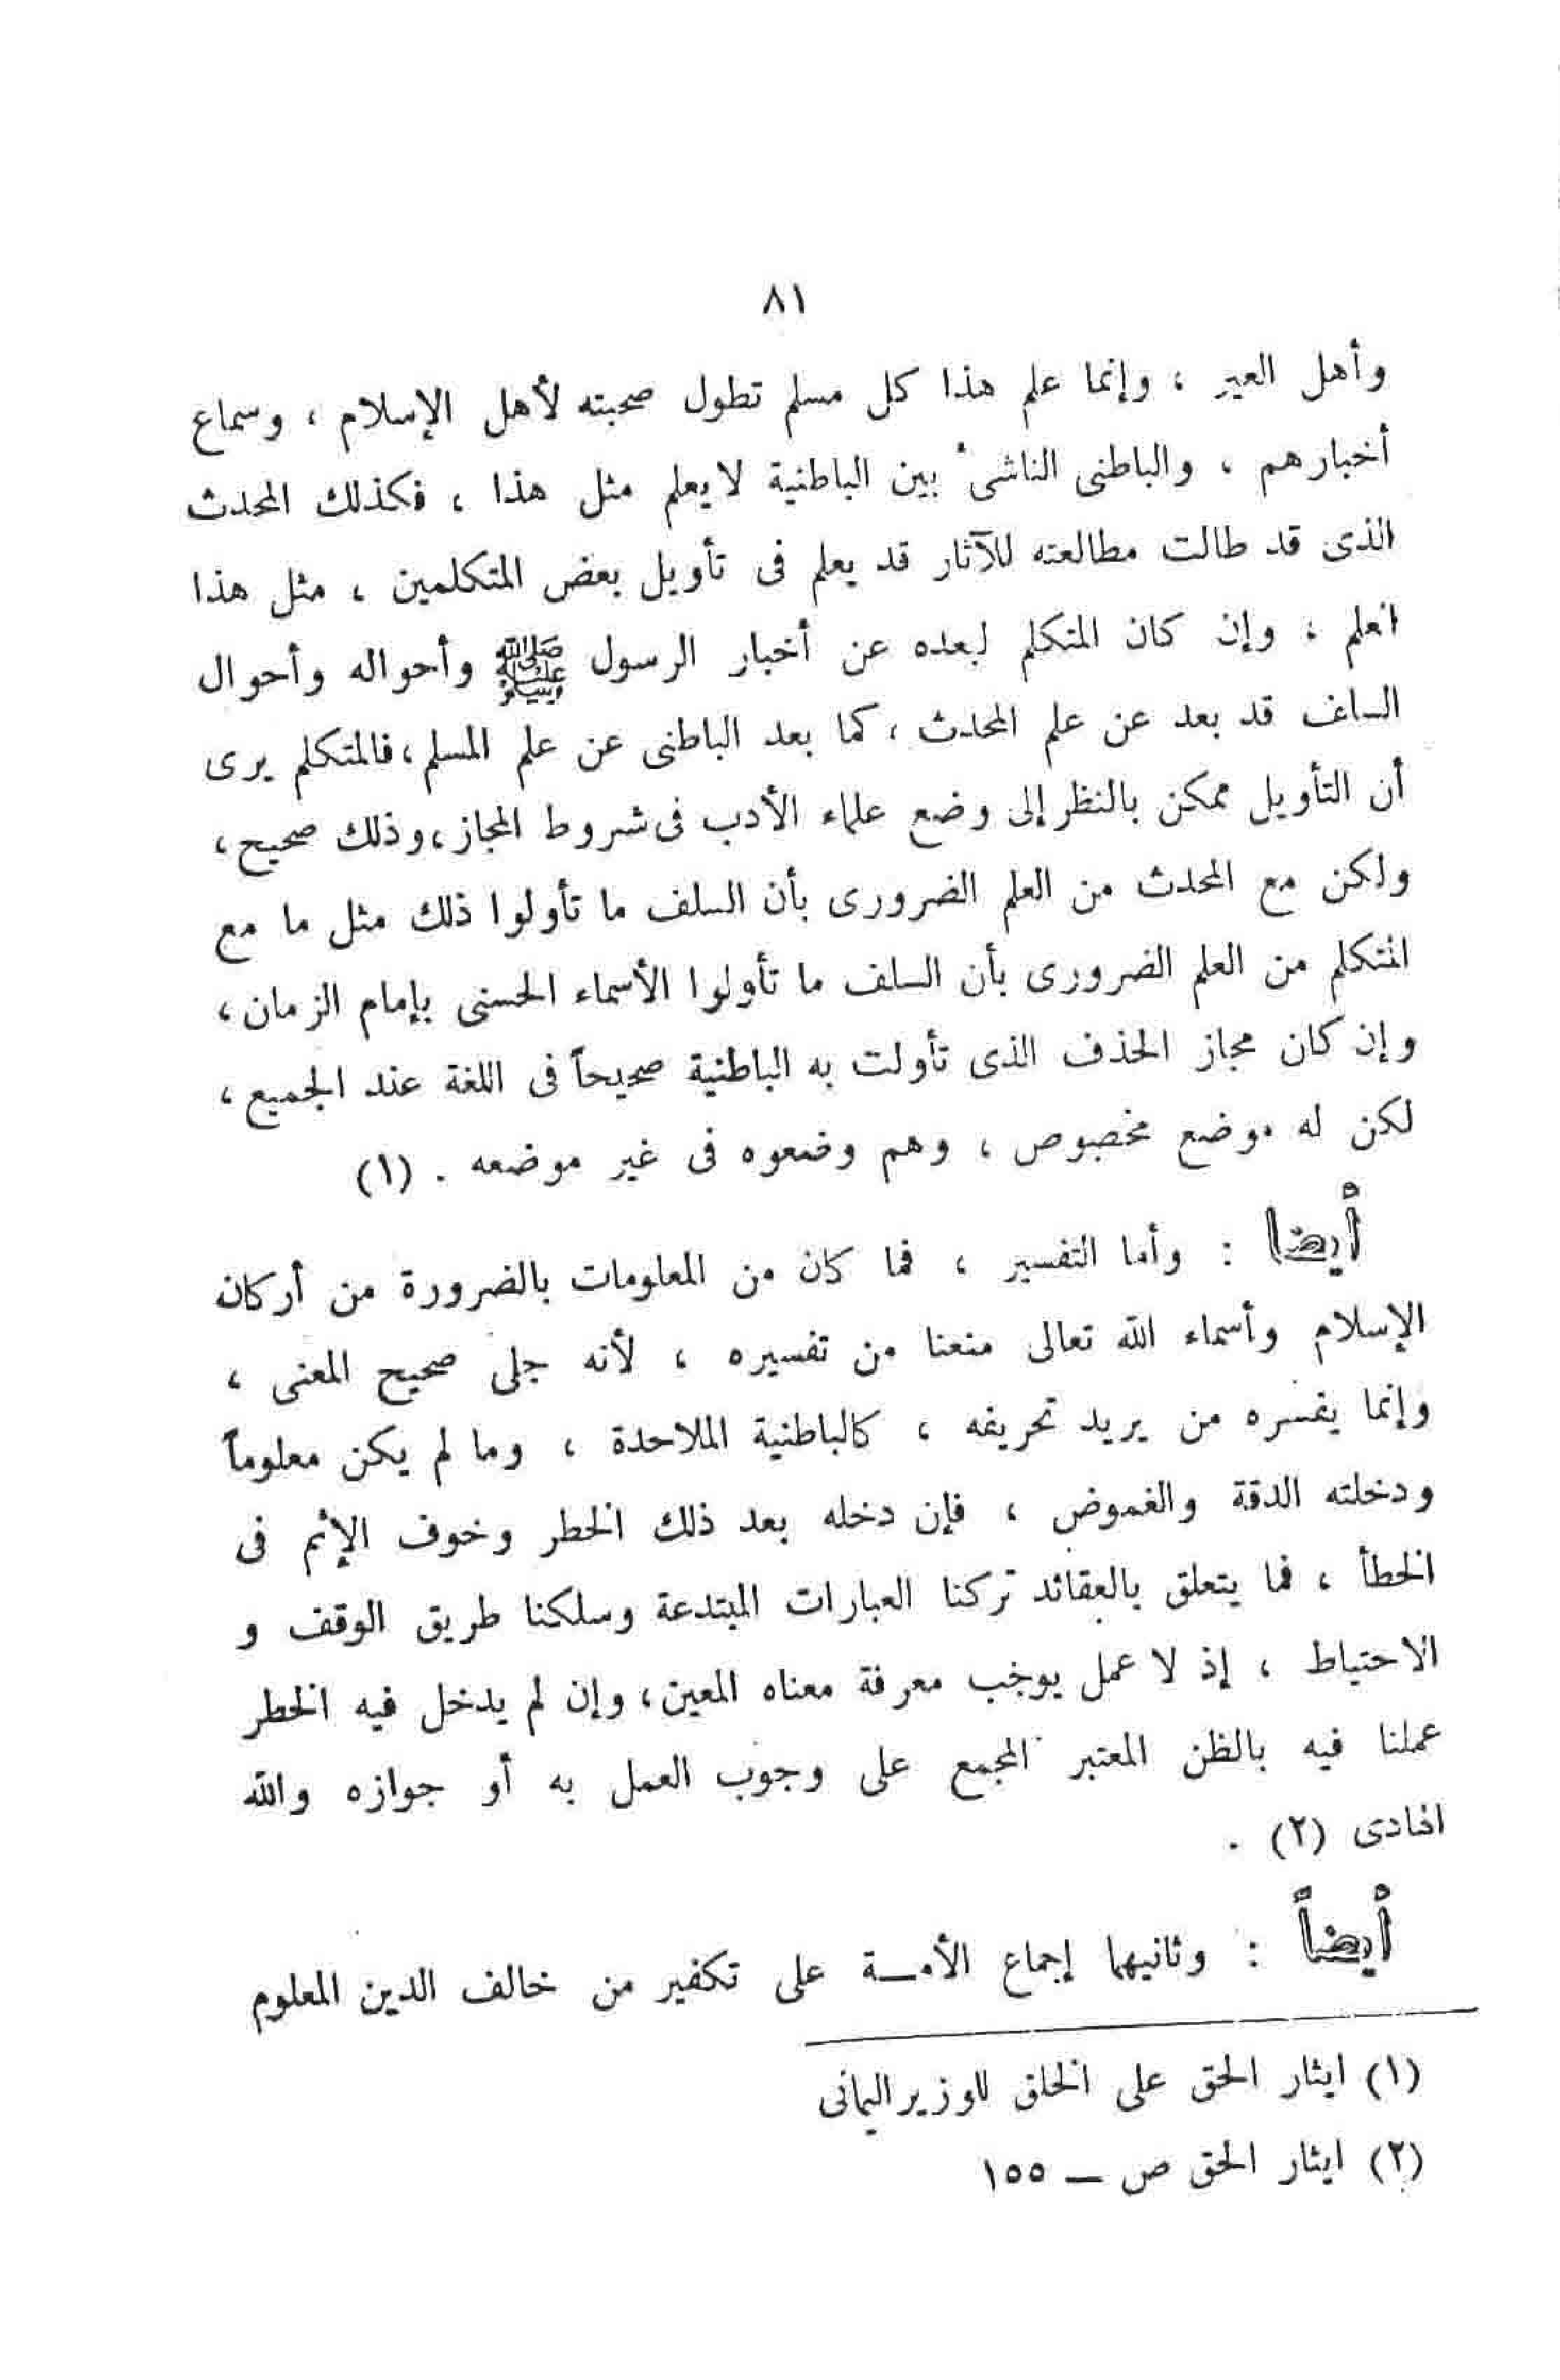 ٨١
وأهل العير ، وإنما علم هذا كل مسلم تطول صحبته لأهل الإسلام ، وسماع
أخبارهم ، والباطنى الناشىء بين الباطنية لا يعلم مثل هذا ، فكذلك المحدث
الذى قد طالت مطالعته للآثار قد يعلم فى تأويل بعض المتكلمين ، مثل هذا
العلم ، وإن كان المتكلم لبعده عن أخبار الرسول ﷺ وأحواله وأحوال
السلف قد بعد عن علم المحدث ، كما بعد الباطنى عن علم المسلم ، فالمتكلم يرى
أن التأويل ممكن بالنظر إلى وضع علماء الأدب فى شروط المجاز ، وذلك صحيح ،
ولكن مع المحدث من العلم الضرورى بأن السلف ما تأولوا ذلك مثل ما مع
المتكلم من العلم الضرورى بأن السلف ما تأولوا الأسماء الحسنى بإمام الزمان ،
وإن كان مجاز الحذف الذى تأولت به الباطنية صحيحاً فى اللغة عند الجميع ،
لكن له موضع مخصوص ، وهم وضعوه فى غير موضعه . (١)
أيضا : وأما التفسير ، فما كان من المعلومات بالضرورة من أركان
الإسلام وأسماء الله تعالى منعنا من تفسيره ، لأنه جلى صحيح المعنى ،
وإنما يفسره من يريد تحريفه ، كالباطنية الملاحدة ، وما لم يكن معلوماً
ودخلته الدقة والغموض ، فإن دخله بعد ذلك الخطر وخوف الإثم فى
الخطأ ، فما يتعلق بالعقائد تركنا العبارات المبتدعة وسلكنا طريق الوقف و
الاحتياط ، إذ لا عمل يوجب معرفة معناه المعين ، وإن لم يدخل فيه الخطر
عملنا فيه بالظن المعتبر المجمع على وجوب العمل به أو جوازه والله
الهادى (٢) .
أيضاً : وثانيهما إجماع الأمــة على تكفير من خالف الدين المعلوم
(١) ايثار الحق على الخلق للوزير اليمانى
(٢) ايثار الحق ص — ١٥٥